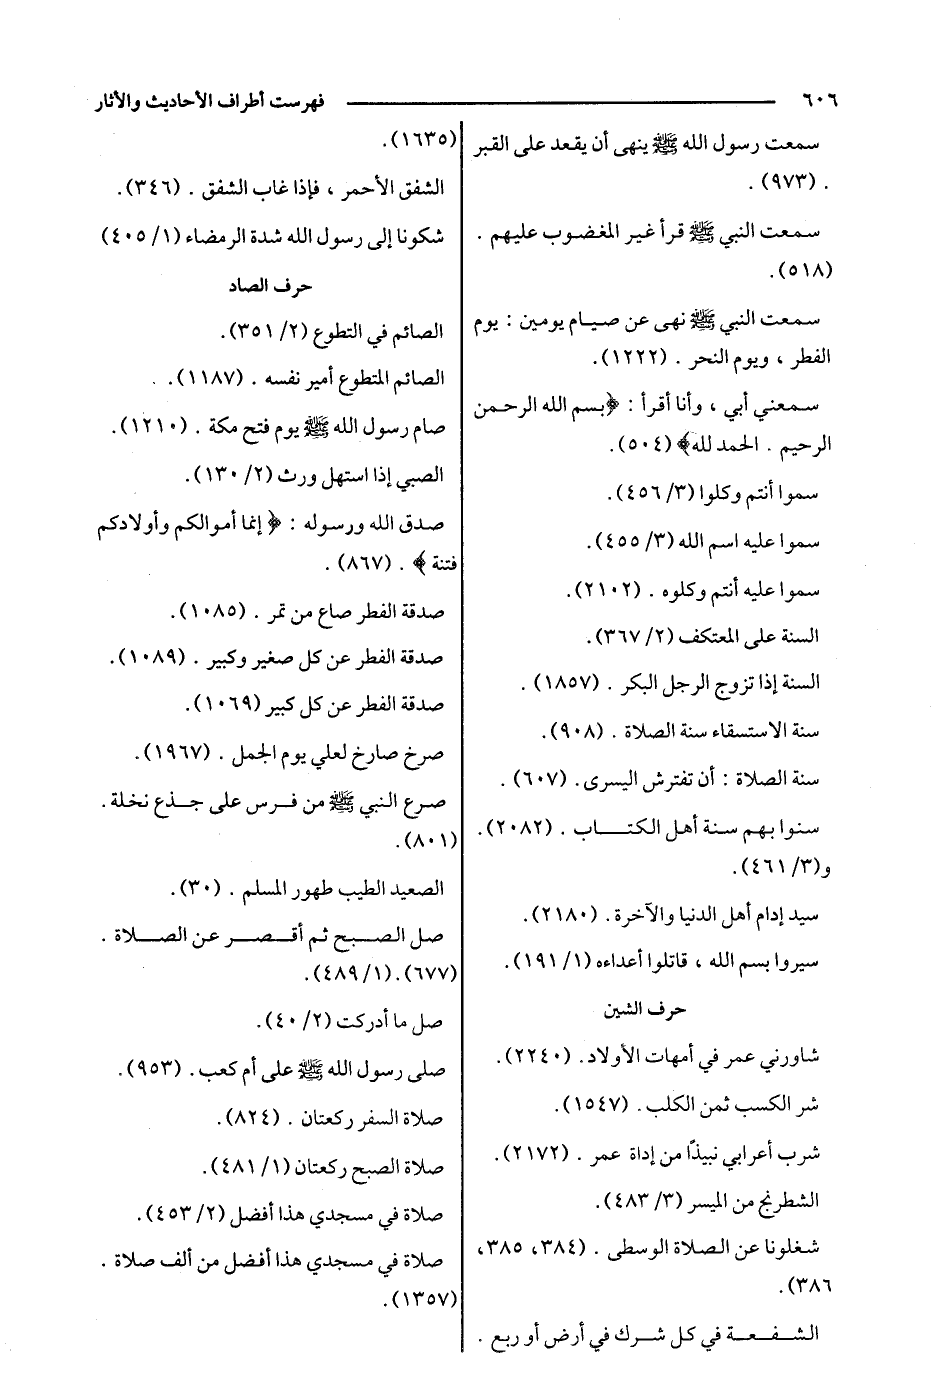 ٦٠٦ فهرست أطراف الأحاديث والأثار
سمعت رسول الله ﷺ ينهى أن يقعد على القبر
. (٩٧٣) .
سمعت النبي ﷺ قرأ غير المغضوب عليهم .
(٥١٨).
سمعت النبي ﷺ نهى عن صيام يومين : يوم
الفطر ، ويوم النحر . (١٢٢٢).
سمعني أبي ، وأنا أقرأ : ﴿بسم الله الرحمن
الرحيم . الحمد لله﴾ (٥٠٤).
سموا أنتم وكلوا (٣/ ٤٥٦).
سموا عليه اسم الله (٣/ ٤٥٥).
سموا عليه أنتم وكلوه . (٢١٠٢).
السنة على المعتكف (٢/ ٣٦٧).
السنة إذا تزوج الرجل البكر . (١٨٥٧) .
سنة الاستسقاء سنة الصلاة . (٩٠٨).
سنة الصلاة : أن تفترش اليسرى. (٦٠٧) .
سنوا بهم سنة أهل الكتاب . (٢٠٨٢).
و(٣/ ٤٦١).
سيد إدام أهل الدنيا والآخرة. (٢١٨٠).
سيروا بسم الله ، قاتلوا أعداءه (١/ ١٩١).
حرف الشين
شاورني عمر في أمهات الأولاد. (٢٢٤٠).
شر الكسب ثمن الكلب. (١٥٤٧).
شرب أعرابي نبيذًا من إداة عمر . (٢١٧٢).
الشطرنج من الميسر (٣/ ٤٨٣).
شغلونا عن الصلاة الوسطى . (٣٨٤، ٣٨٥،
٣٨٦).
الشفعة في كل شرك في أرض أو ربع .
(١٦٣٥).
الشفق الأحمر ، فإذا غاب الشفق . (٣٤٦).
شكونا إلى رسول الله شدة الرمضاء (١/ ٤٠٥)
حرف الصاد
الصائم في التطوع (٢/ ٣٥١).
الصائم المتطوع أمير نفسه . (١١٨٧). .
صام رسول الله ﷺ يوم فتح مكة . (١٢١٠).
الصبي إذا استهل ورث (٢/ ١٣٠).
صدق الله ورسوله : ﴿ إنما أموالكم وأولادكم
فتنة ﴾ . (٨٦٧) .
صدقة الفطر صاع من تمر . (١٠٨٥).
صدقة الفطر عن كل صغير وكبير . (١٠٨٩).
صدقة الفطر عن كل كبير (١٠٦٩).
صرخ صارخ لعلي يوم الجمل . (١٩٦٧).
صرع النبي ﷺ من فرس على جذع نخلة .
(٨٠١).
الصعيد الطيب طهور المسلم . (٣٠).
صل الصبح ثم أقصر عن الصلاة .
(٦٧٧). (١/ ٤٨٩).
صل ما أدركت (٢/ ٤٠).
صلى رسول الله ﷺ على أم كعب. (٩٥٣).
صلاة السفر ركعتان . (٨٢٤).
صلاة الصبح ركعتان (١/ ٤٨١).
صلاة في مسجدي هذا أفضل (٢/ ٤٥٣).
صلاة في مسجدي هذا أفضل من ألف صلاة .
(١٣٥٧).